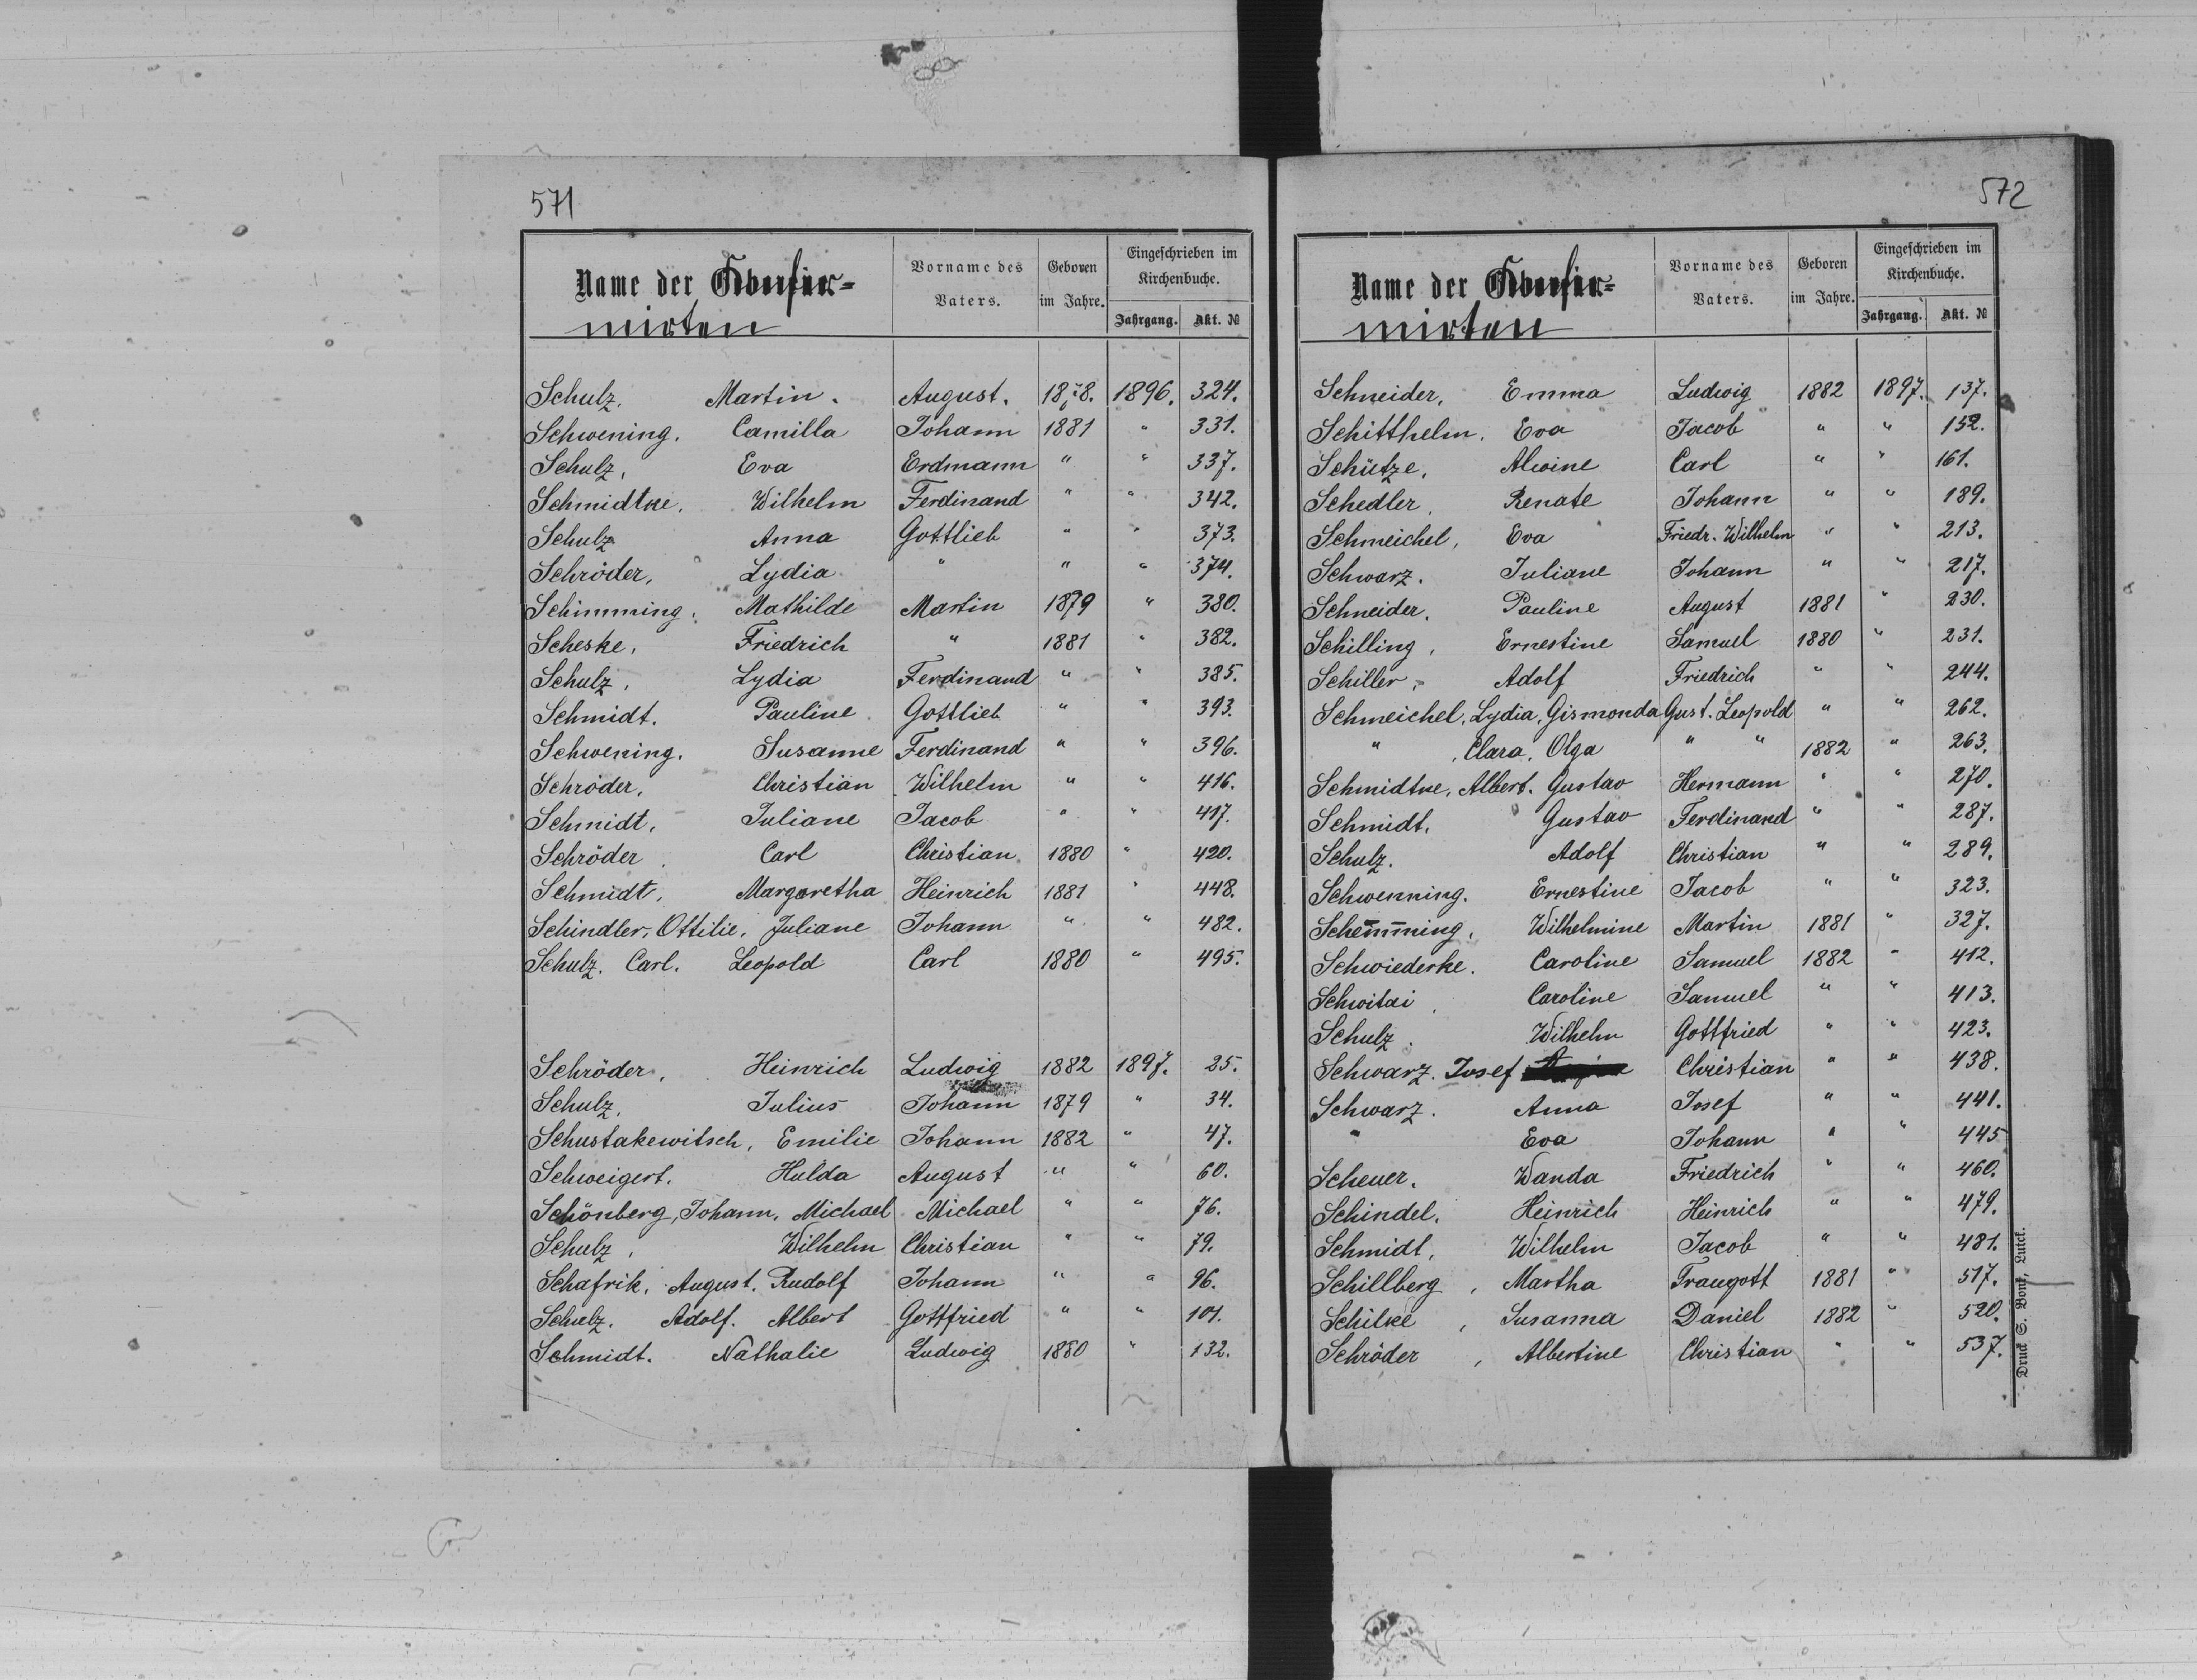 571
Name der Confir=
mirten
Vorname des Vaters.
Geboren im Jahre.
Eingeschrieben im Kirchenbuche.
Jahrgang. Akt. №
Schulz, Martin. August. 1878. 1896. 324.
Schwening. Camilla Johann 1881 " 331.
Schulz, Eva Erdmann " " 337.
Schmidtke, Wilhelm Ferdinand " " 342.
Schulz Anna Gottlieb " " 373.
Schröder, Lydia " " " 374.
Schimming. Mathilde Martin 1879 " 380.
Scheske, Friedrich " 1881 " 382.
Schulz, Lydia Ferdinand " " 385.
Schmidt. Pauline Gottlieb " " 393.
Schwening. Susanne Ferdinand " " 396.
Schröder, Christian Wilhelm " " 416.
Schmidt, Juliane Jacob " " 417.
Schröder. Carl Christian 1880 " 420.
Schmidt, Margaretha Heinrich 1881 " 448.
Schindler, Ottilie, Juliane Johann " " 482.
Schulz. Carl. Leopold Carl 1880 " 495.
Schröder, Heinrich Ludwig 1882 1897. 25.
Schulz, Julius Johann 1879 " 34.
Schustakewitsch, Emilie Johann 1882 " 47.
Schweigert. Hulda August " " 60.
Schönberg, Johann, Michael Michael " " 76.
Schulz, Wilhelm Christian " " 79.
Schafrik, August. Rudolf Johann " " 96.
Schulz. Adolf. Albert Gottfried " " 101.
Schmidt. Nathalie Ludwig 1880 " 132.
572
Name der Confir=
mirten
Vorname des Vaters.
Geboren im Jahre.
Eingeschrieben im Kirchenbuche.
Jahrgang. Akt. №
Schneider, Emma Ludwig 1882 1897. 137.
Schitthelm, Eva Jacob " " 152.
Schütze, Alwine Carl " " 161.
Schedler, Renate Johann " " 189.
Schmeichel, Eva Friedr. Wilhelm " " 213.
Schwarz. Juliane Johann " " 217.
Schneider. Pauline August 1881 " 230.
Schilling, Ernestine Samuel 1880 " 231.
Schiller, Adolf Friedrich " " 244.
Schmeichel, Lydia, Gismonda Gust. Leopold " " 262.
" , Clara, Olga " " 1882 " 263.
Schmidtke, Albert. Gustav Hermann " " 270.
Schmidt, Gustav Ferdinand " " 287.
Schulz. Adolf Christian " " 289.
Schwenning. Ernestine Jacob " " 323.
Schemming, Wilhelmine Martin 1881 " 327.
Schwiederke. Caroline Samuel 1882 " 412.
Schwitai, Caroline Samuel " " 413.
Schulz. Wilhelm Gottfried " " 423.
Schwarz. Josef Christian " " 438.
Schwarz. Anna Josef " " 441.
" Eva Johann " " 445
Scheuer. Wanda Friedrich " " 460.
Schindel. Heinrich Heinrich " " 479.
Schmidt, Wilhelm Jacob " " 481.
Schillberg, Martha Traugott 1881 " 517.
Schilke, Susanna Daniel 1882 " 520.
Schröder, Albertine Christian " " 537.